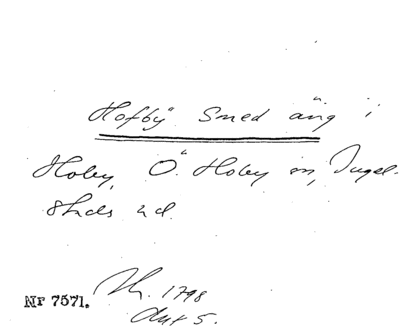 Hofby Smed äng i
Hoby, Ö. Hoby sn, Ingel-
stads hd.
Nr 7571.
1798
Akt 5.